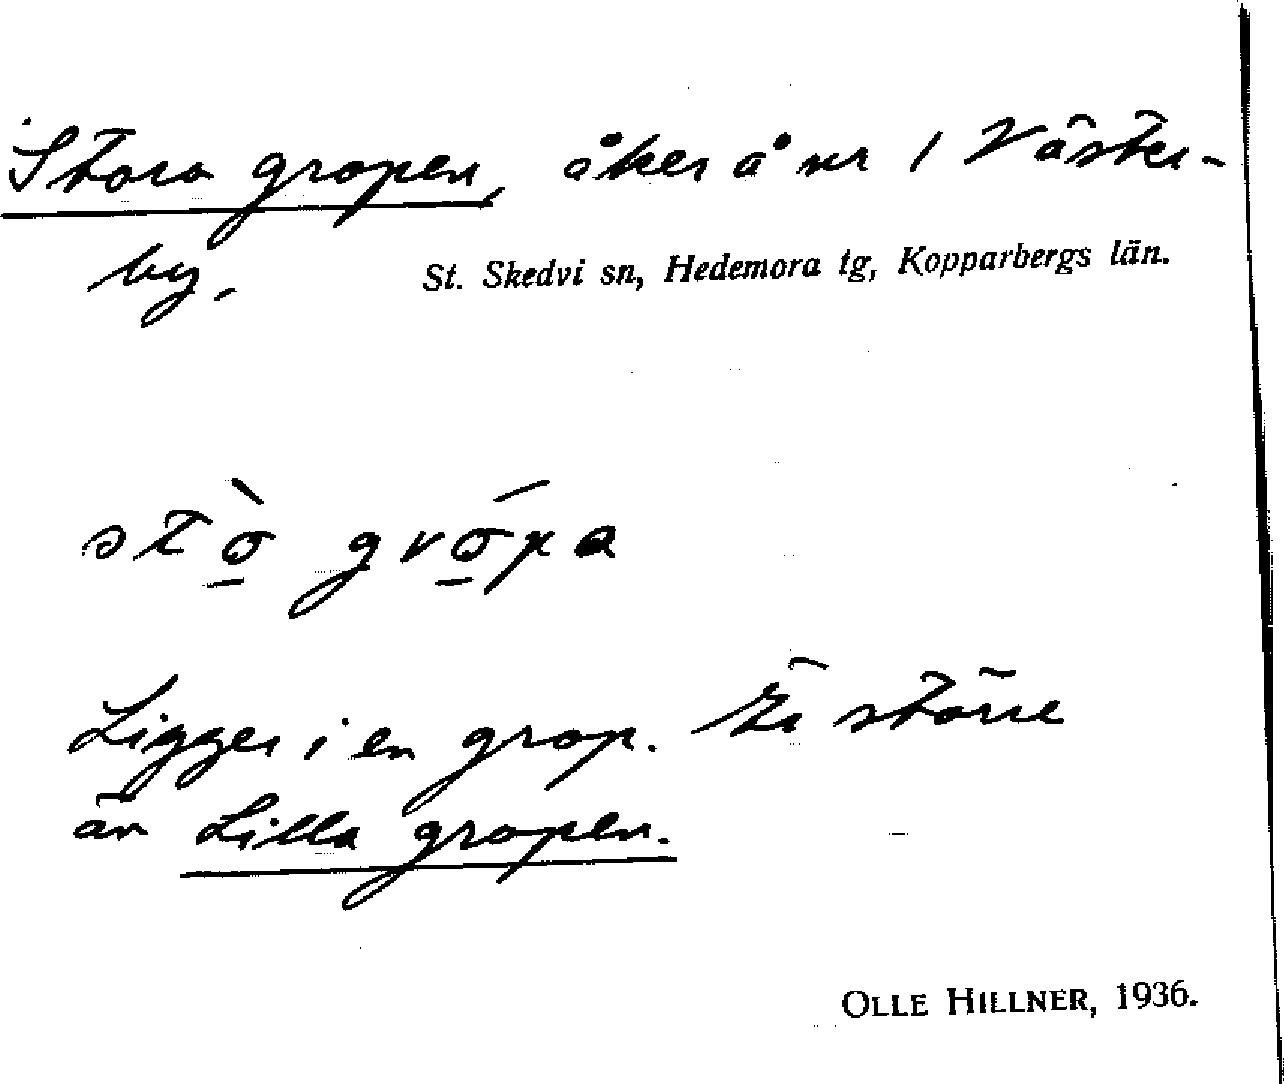 Stora gropen, åker å nr 1 Väster-
by.
St. Skedvi sn, Hedemora tg, Kopparbergs län.
stò̠ gró̠pa
Ligger i en grop. Är större
än Lilla gropen.
OLLE HILLNER, 1936.